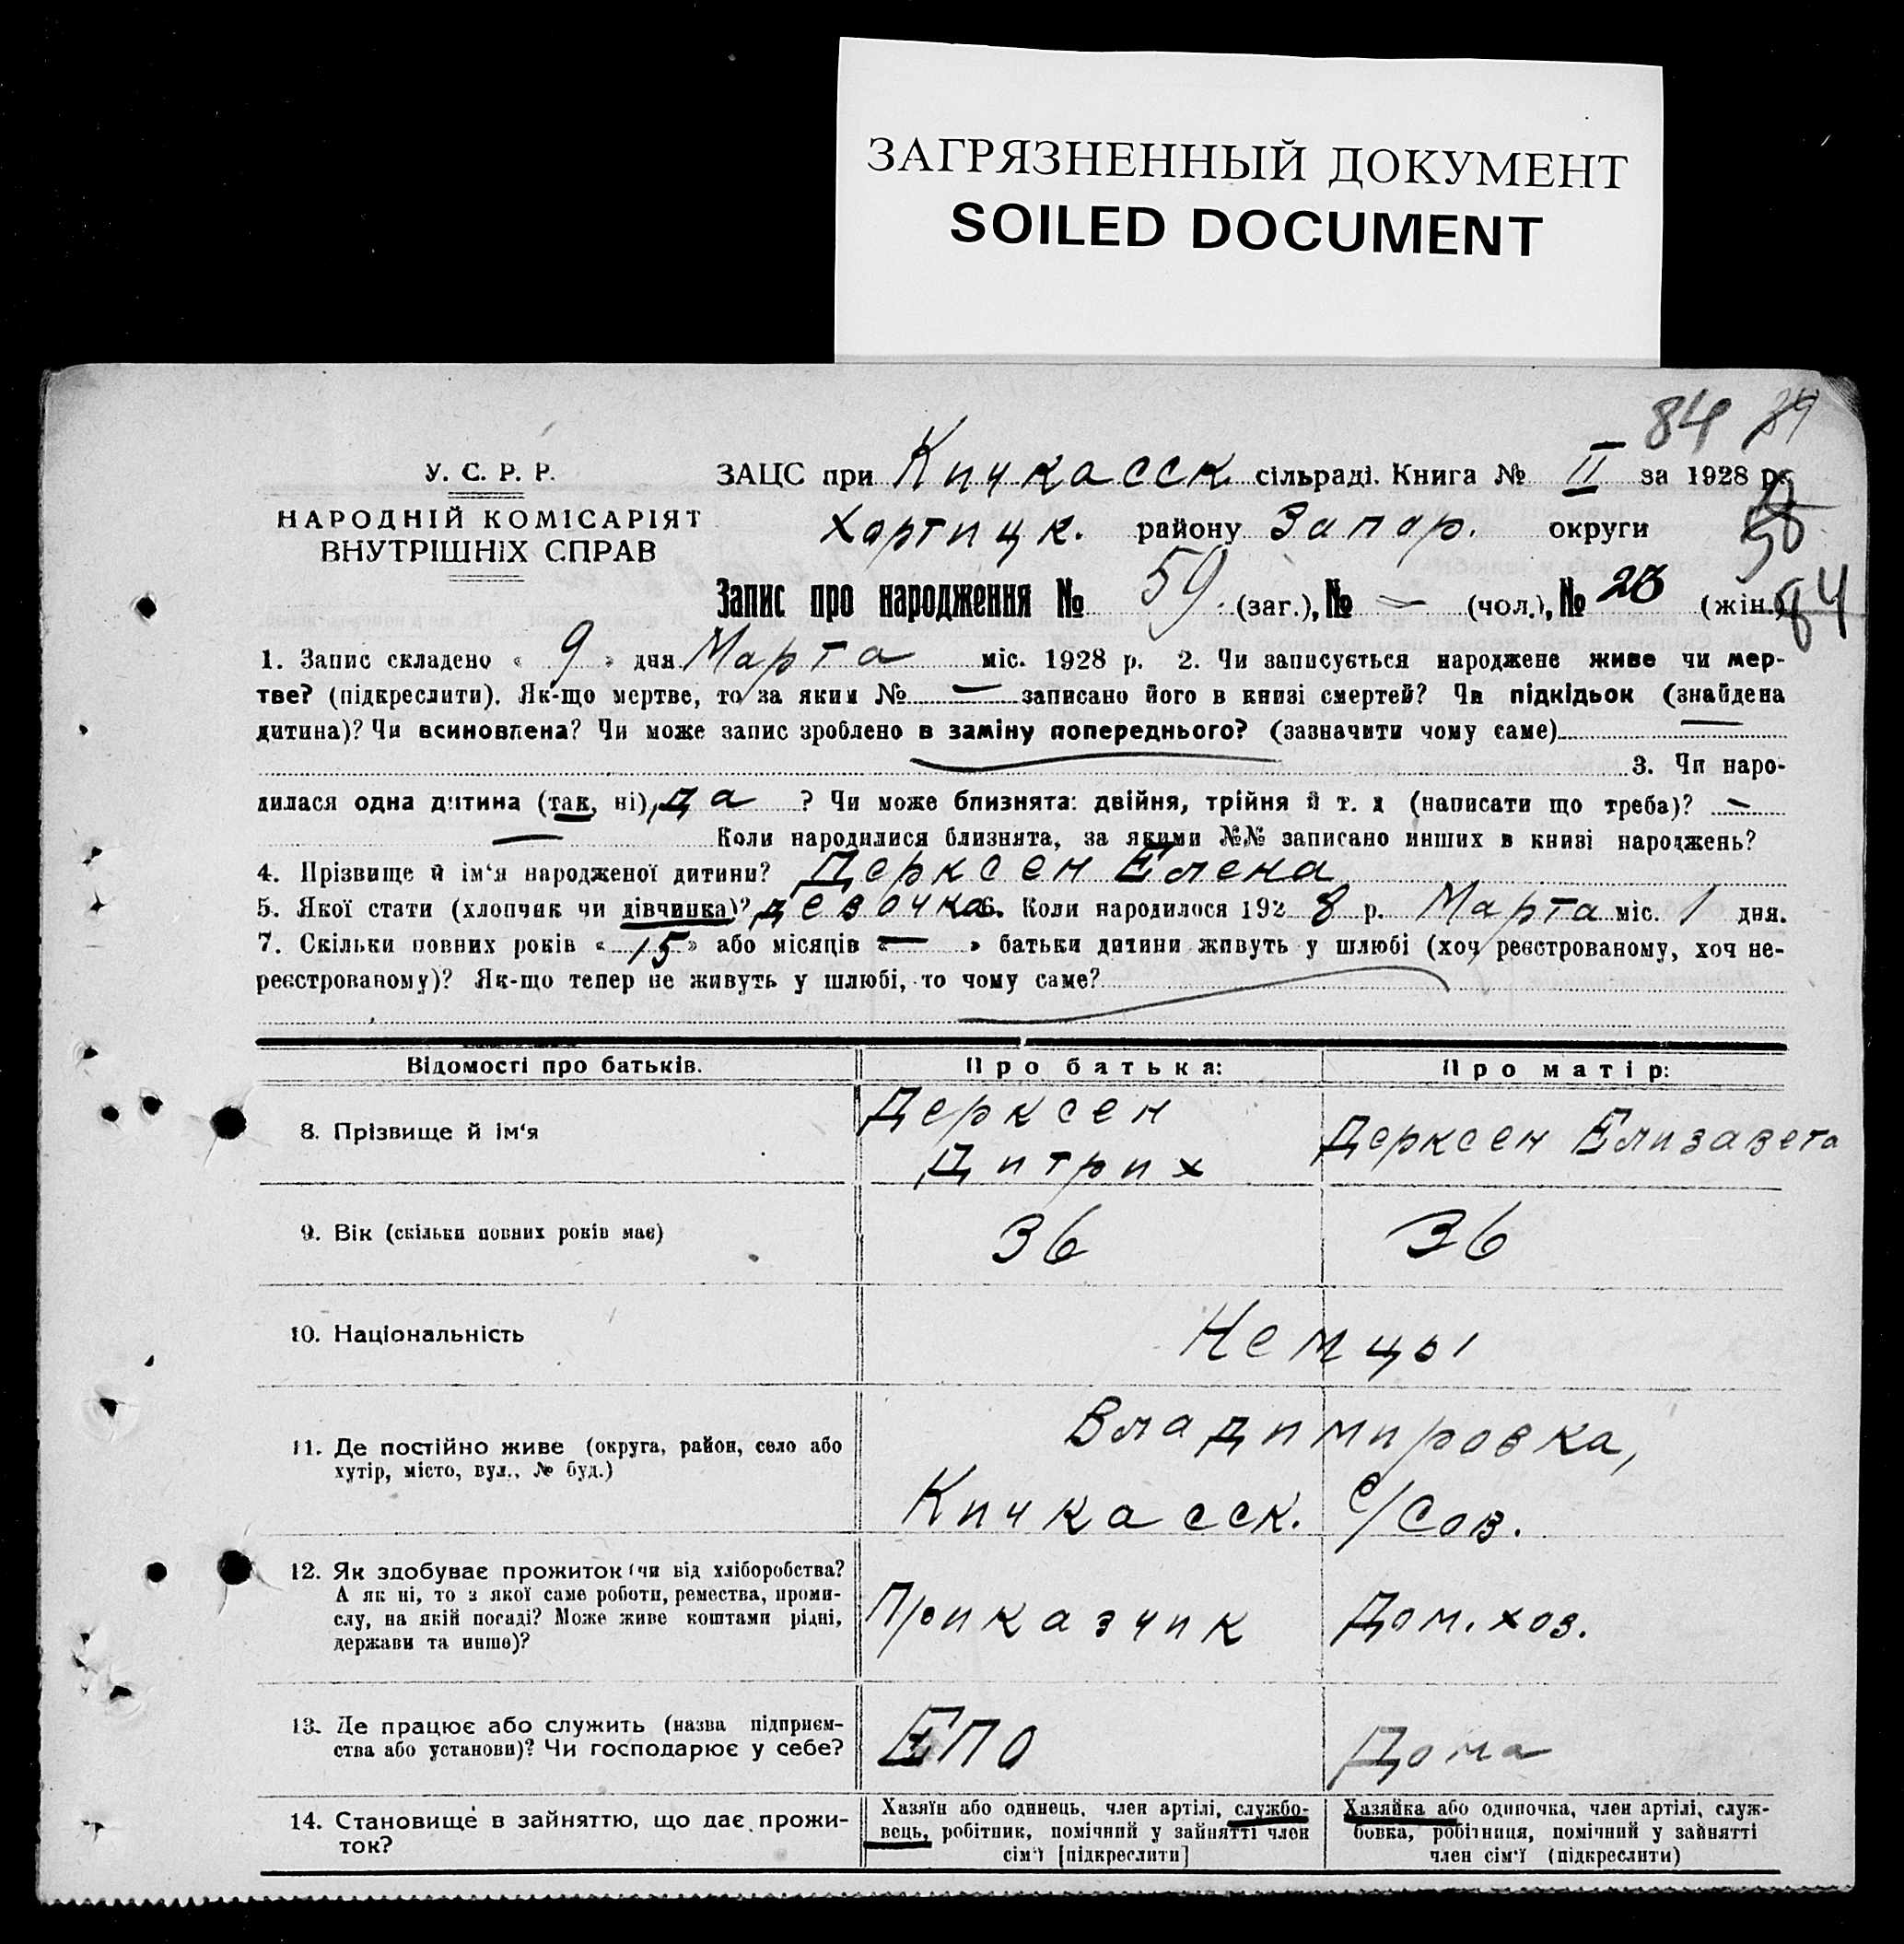 ЗАГРЯЗНЕННЫЙ ДОКУМЕНТ
SOILED DOCUMENT
84
У. С. Р. Р.
НАРОДНІЙ КОМІСАРІЯТ
ВНУТРІШНІХ СПРАВ
ЗАЦС при Кичкасск. сільраді. Книга № II за 1928 р.
Хортицк. району Запор. округи
58
Запис про народження № 59 (заг.), № — (чол.), № 28 (жін.)
84
1. Запис складено « 9 » дня Марта міс. 1928 р. 2. Чи записується народжене живе чи мер-
тве? (підкреслити). Як-що мертве, то за яким № — записано його в книзі смертей? Чи підкідьок (знайдена
дитина)? Чи всиновлена? Чи може запис зроблено в заміну попереднього? (зазначити чому саме) —
3. Чи наро-
дилася одна дитина (так, ні), да ? Чи може близнята: двійня, трійня й т. д (написати що треба)? —
— Коли народилися близнята, за якими №№ записано инших в книзі народжень?
4. Прізвище й ім‘я народженої дитини? Дерксен Елена
5. Якої стати (хлопчик чи дівчинка)? девочка 6. Коли народилося 192 8 р. Марта міс. 1 дня.
7. Скільки повних років « 15 » або місяців « — » батьки дитини живуть у шлюбі (хоч реєстрованому, хоч не-
реєстрованому)? Як-що тепер не живуть у шлюбі, то чому саме?
Відомості про батьків. Про батька: Про матір:
8. Прізвище й ім‘я
Дерксен
Дитрих
Дерксен Елизавета
9. Вік (скільки повних років має) 36 36
10. Національність Немцы
11. Де постійно живе (округа, район, село або
хутір, місто, вул., № буд.)
Владимировка,
Кичкасск. с/Сов.
12. Як здобуває прожиток (чи від хліборобства?
А як ні, то з якої саме роботи, ремества, проми-
слу, на якій посаді? Може живе коштами рідні,
держави та инше)?
Приказчик Дом. хоз.
13. Де працює або служить (назва підприєм-
ства або установи)? Чи господарює у себе?
ЕПО Дома
14. Становище в зайняттю, що дає прожи-
ток?
Хазяїн або одинець, член артілі, службо-
вець, робітник, помічний у зайнятті член
сім‘ї [підкреслити]
Хазяйка або одиночка, член артілі, служ-
бовка, робітниця, помічний у зайнятті
член сім‘ї (підкреслити)